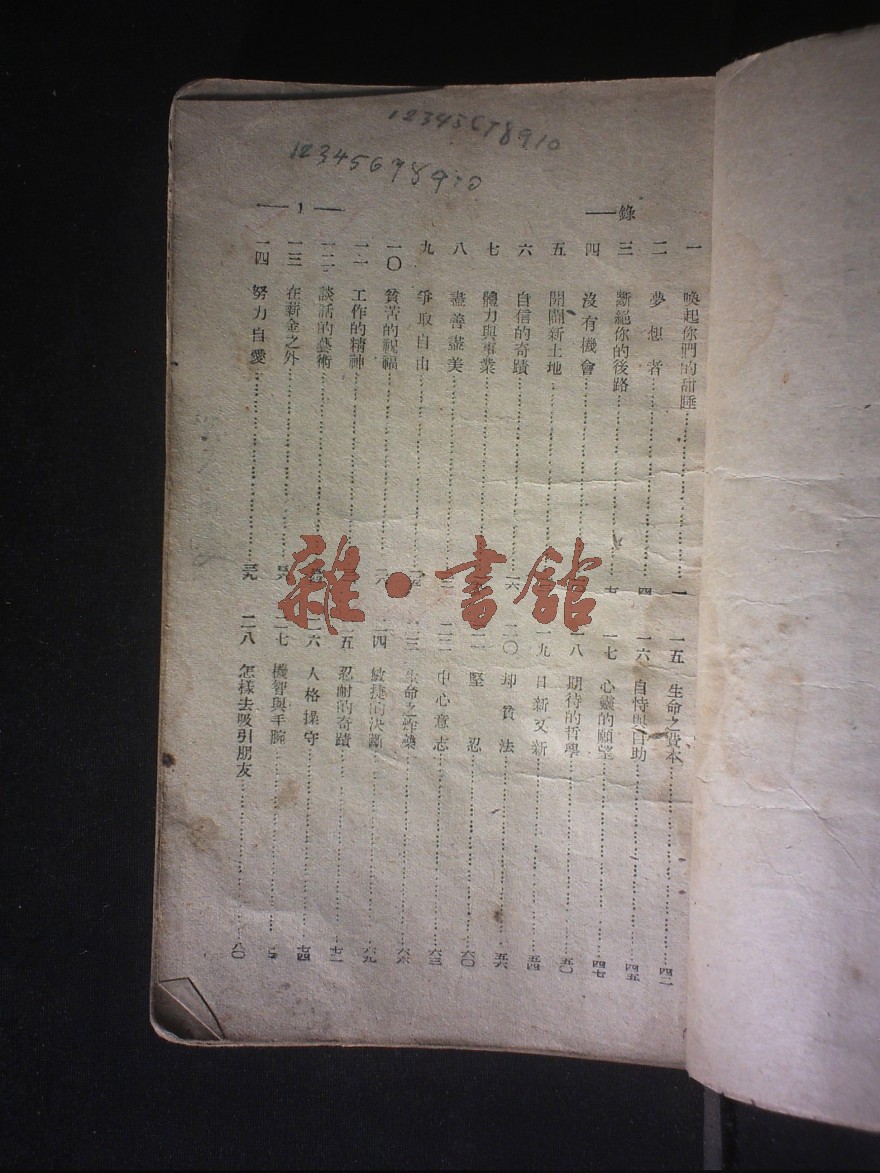 12345678910
12345678910
錄——
——1——
一 喚起你們的甜睡……一
二 夢想者……四
三 斷絕你的後路……
四 沒有機會……
五 開闢新土地……
六 自信的奇蹟……一六
七 體力與事業……
八 盡善盡美……
九 爭取自由……
一〇 貧苦的祝福……二八
一一 工作的精神……
一二 談話的藝術……
一三 在薪金之外……
一四 努力自愛……三九
一五 生命之資本……四二
一六 自恃與自助……四五
一七 心靈的願望……四七
一八 期待的哲學……五〇
一九 日新又新……五四
二〇 却貧法……五六
二一 堅忍……六〇
二二 中心意志……六三
二三 生命之炸藥……六六
二四 敏捷的決斷……六九
二五 忍耐的奇蹟……七二
二六 人格操守……七四
二七 機智與手腕……
二八 怎樣去吸引朋友……八〇
雜·書館